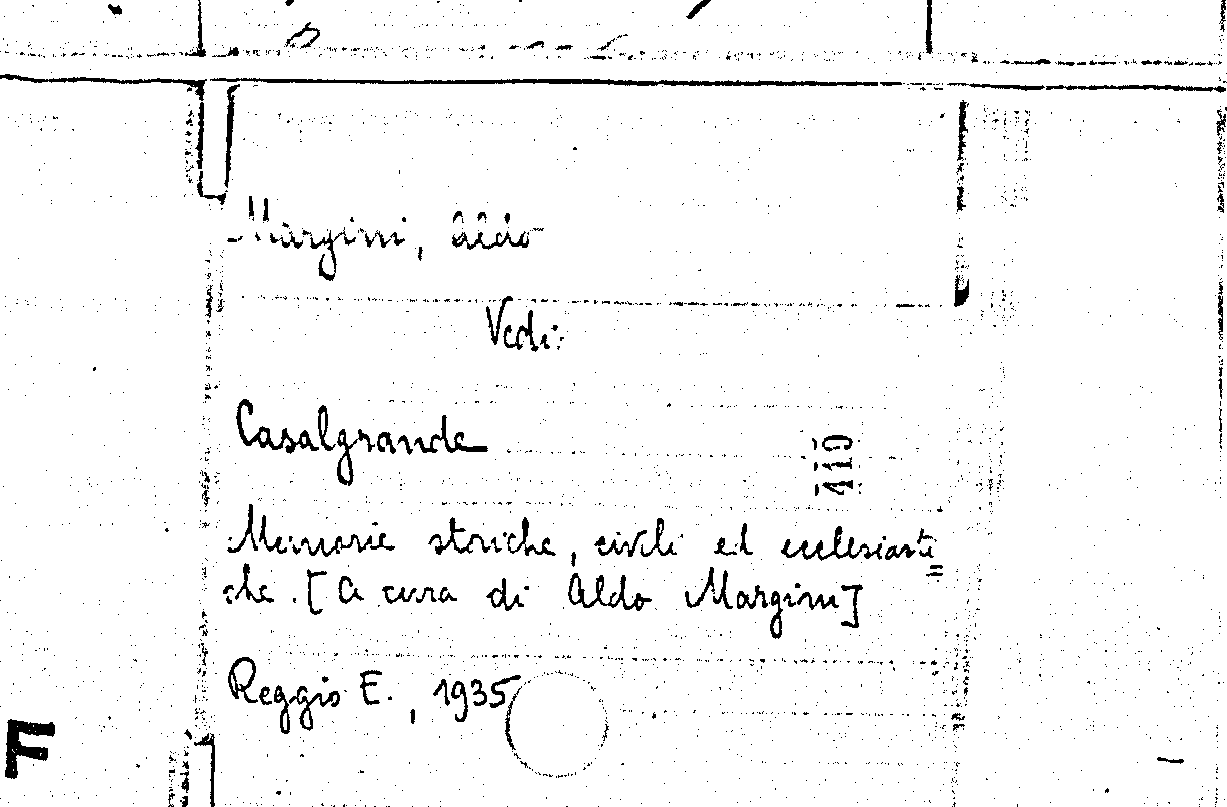 Margini, Aldo
Vedi:
Casalgrande
419
Memorie storiche, civili ed ecclesiasti=
che. [A cura di Aldo Margini]
Reggio E., 1935
F